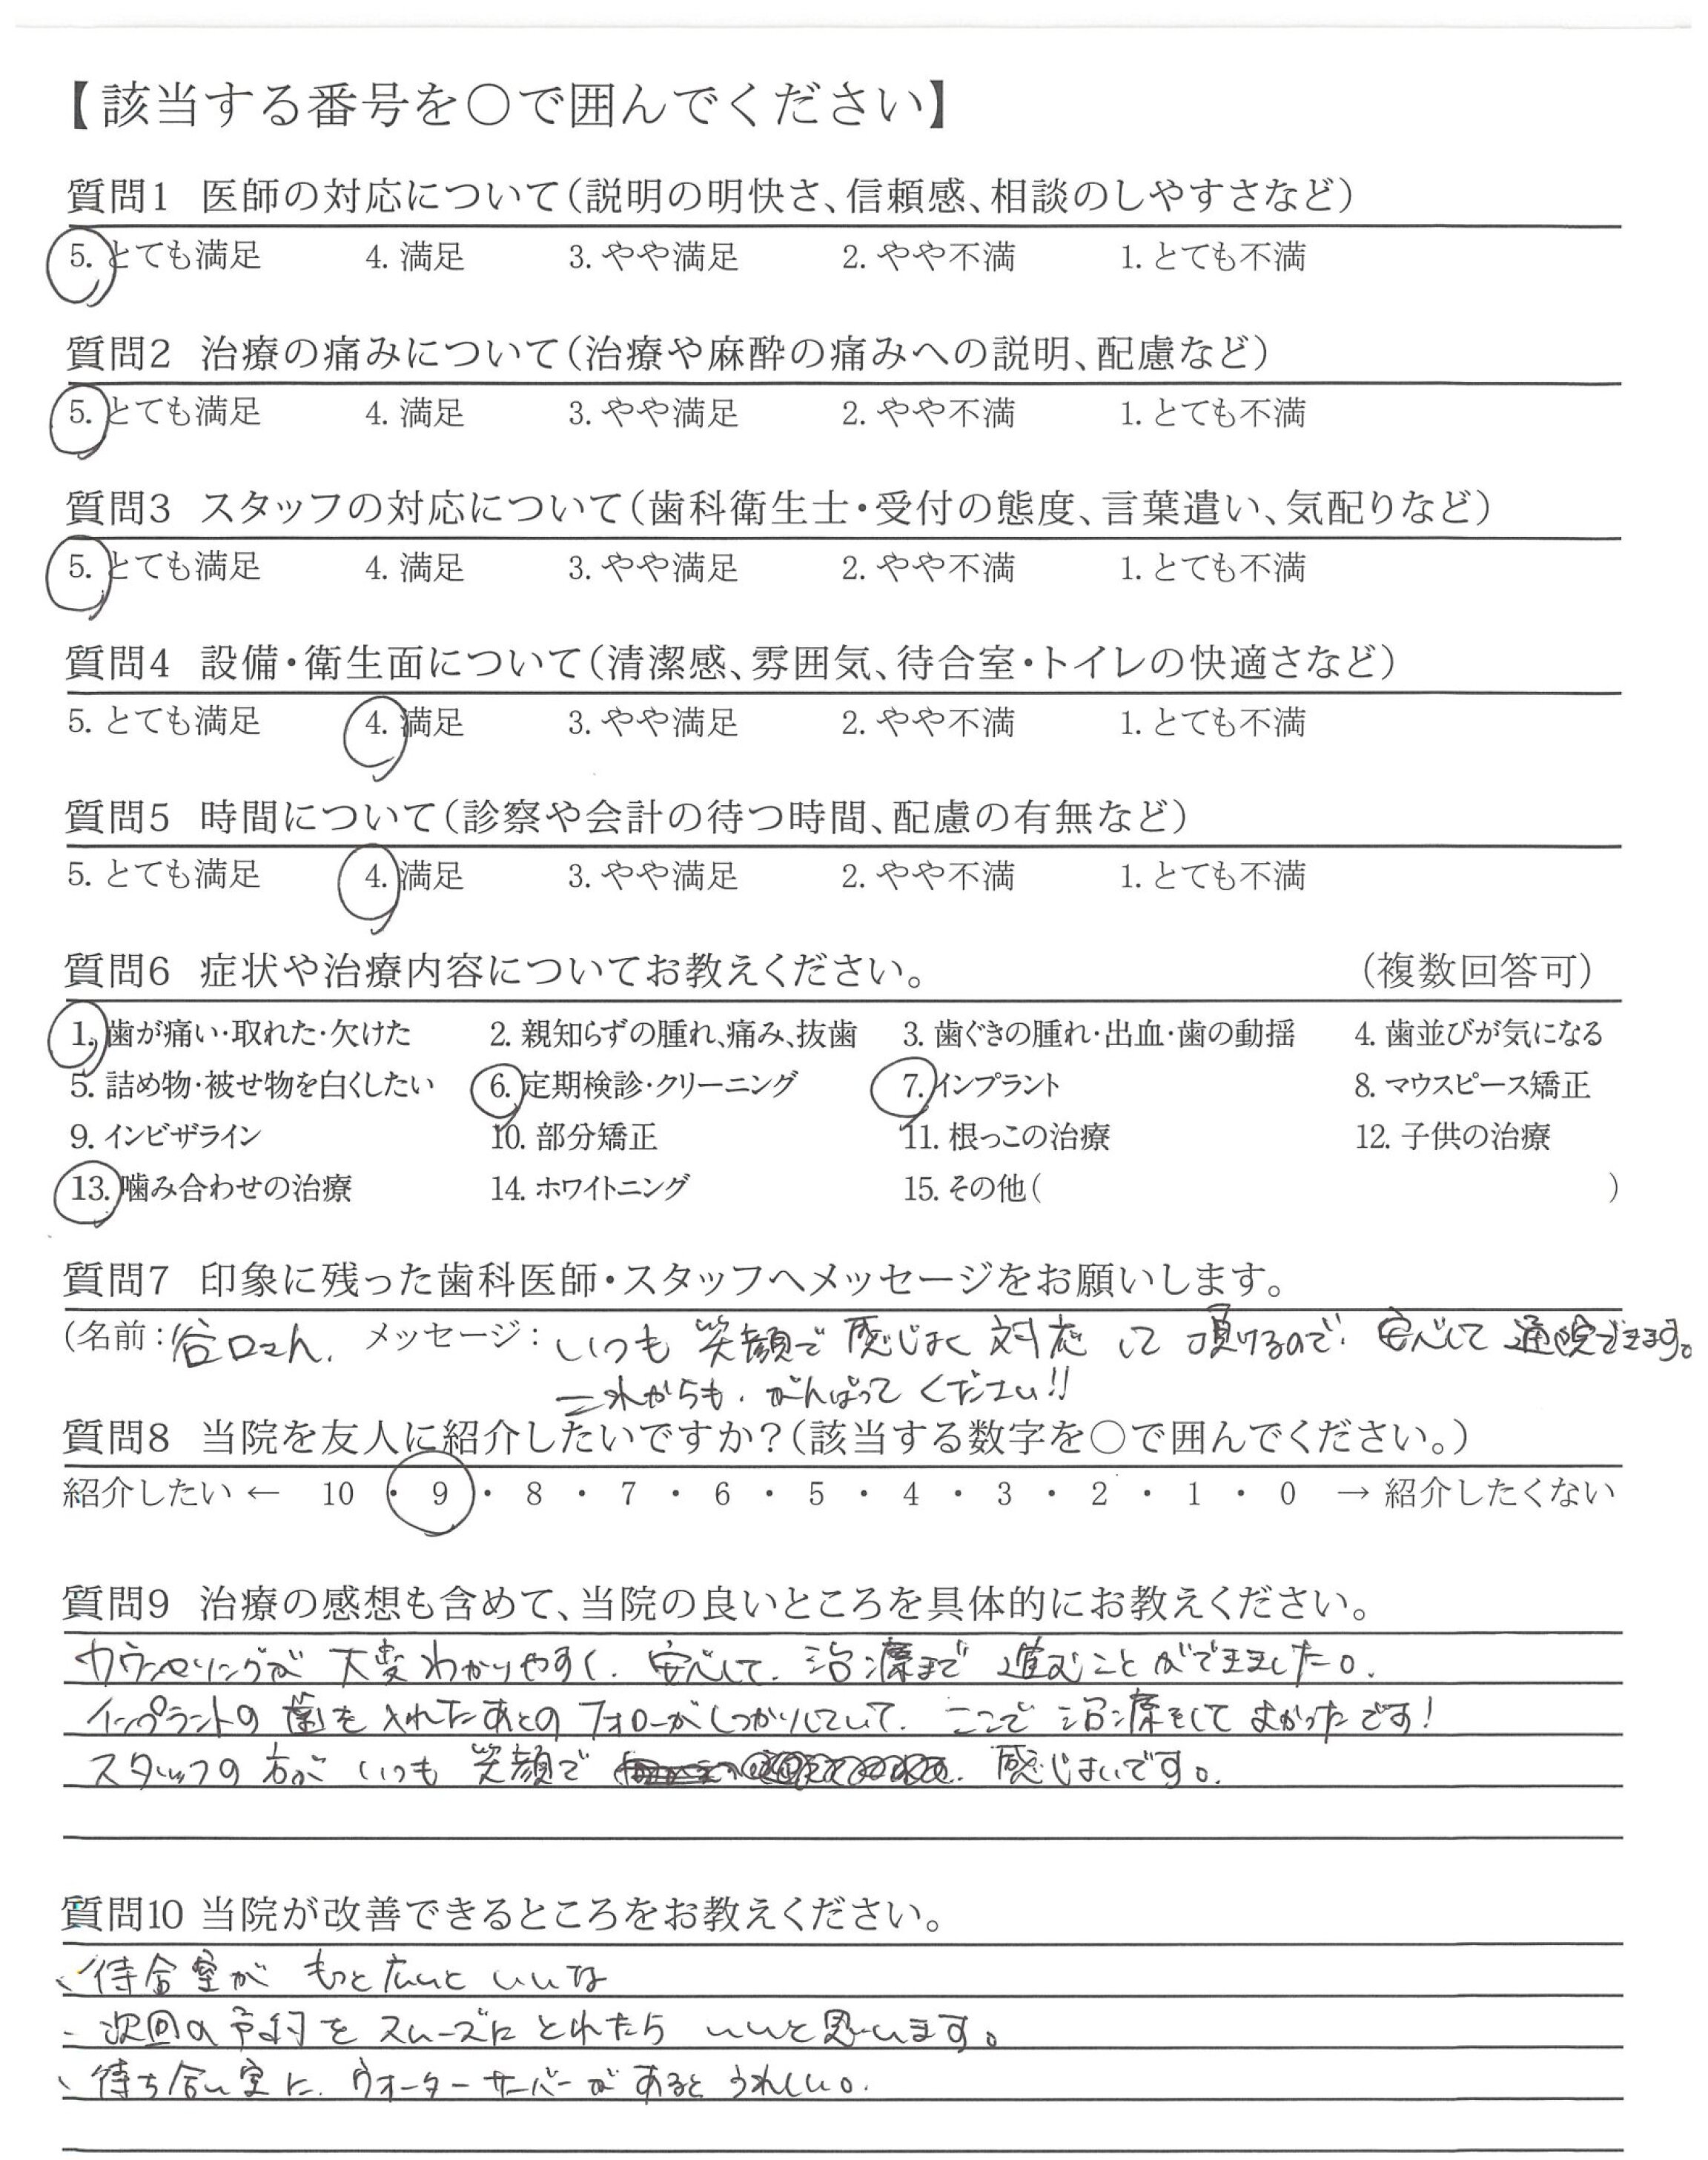 【該当する番号を○で囲んでください】
質問1 医師の対応について(説明の明快さ、信頼感、相談のしやすさなど)
5. とても満足 4. 満足 3. やや満足 2. やや不満 1. とても不満
質問2 治療の痛みについて(治療や麻酔の痛みへの説明、配慮など)
5. とても満足 4. 満足 3. やや満足 2. やや不満 1. とても不満
質問3 スタッフの対応について(歯科衛生士・受付の態度、言葉遣い、気配りなど)
5. とても満足 4. 満足 3. やや満足 2. やや不満 1. とても不満
質問4 設備・衛生面について(清潔感、雰囲気、待合室・トイレの快適さなど)
5. とても満足 4. 満足 3. やや満足 2. やや不満 1. とても不満
質問5 時間について(診察や会計の待つ時間、配慮の有無など)
5. とても満足 4. 満足 3. やや満足 2. やや不満 1. とても不満
質問6 症状や治療内容についてお教えください。 (複数回答可)
1. 歯が痛い・取れた・欠けた 2. 親知らずの腫れ、痛み、抜歯 3. 歯ぐきの腫れ・出血・歯の動揺 4. 歯並びが気になる
5. 詰め物・被せ物を白くしたい 6. 定期検診・クリーニング 7. インプラント 8. マウスピース矯正
9. インビザライン 10. 部分矯正 11. 根っこの治療 12. 子供の治療
13. 噛み合わせの治療 14. ホワイトニング 15. その他( )
質問7 印象に残った歯科医師・スタッフへメッセージをお願いします。
(名前:谷口さん. メッセージ:いつも 笑顔で 感じよく 対応 して 頂けるので、安心して 通院できます。
これからも、がんばって ください!!
質問8 当院を友人に紹介したいですか?(該当する数字を○で囲んでください。)
紹介したい ← 10 ・ 9 ・ 8 ・ 7 ・ 6 ・ 5 ・ 4 ・ 3 ・ 2 ・ 1 ・ 0 → 紹介したくない
質問9 治療の感想も含めて、当院の良いところを具体的にお教えください。
カウンセリングが 大変わかりやすく、安心して、治療まで 進むことができました。
インプラントの 歯を 入れたあとの フォローがしっかりしていて、ここで 治療をして よかったです!
スタッフの 方が いつも 笑顔で 感じよいです。
質問10 当院が改善できるところをお教えください。
、待合室が もっと広いと いいな
、次回の予約を スムーズに とれたら いいと思います。
、待ち合い室に、ウォーターサーバーが あると うれしい。